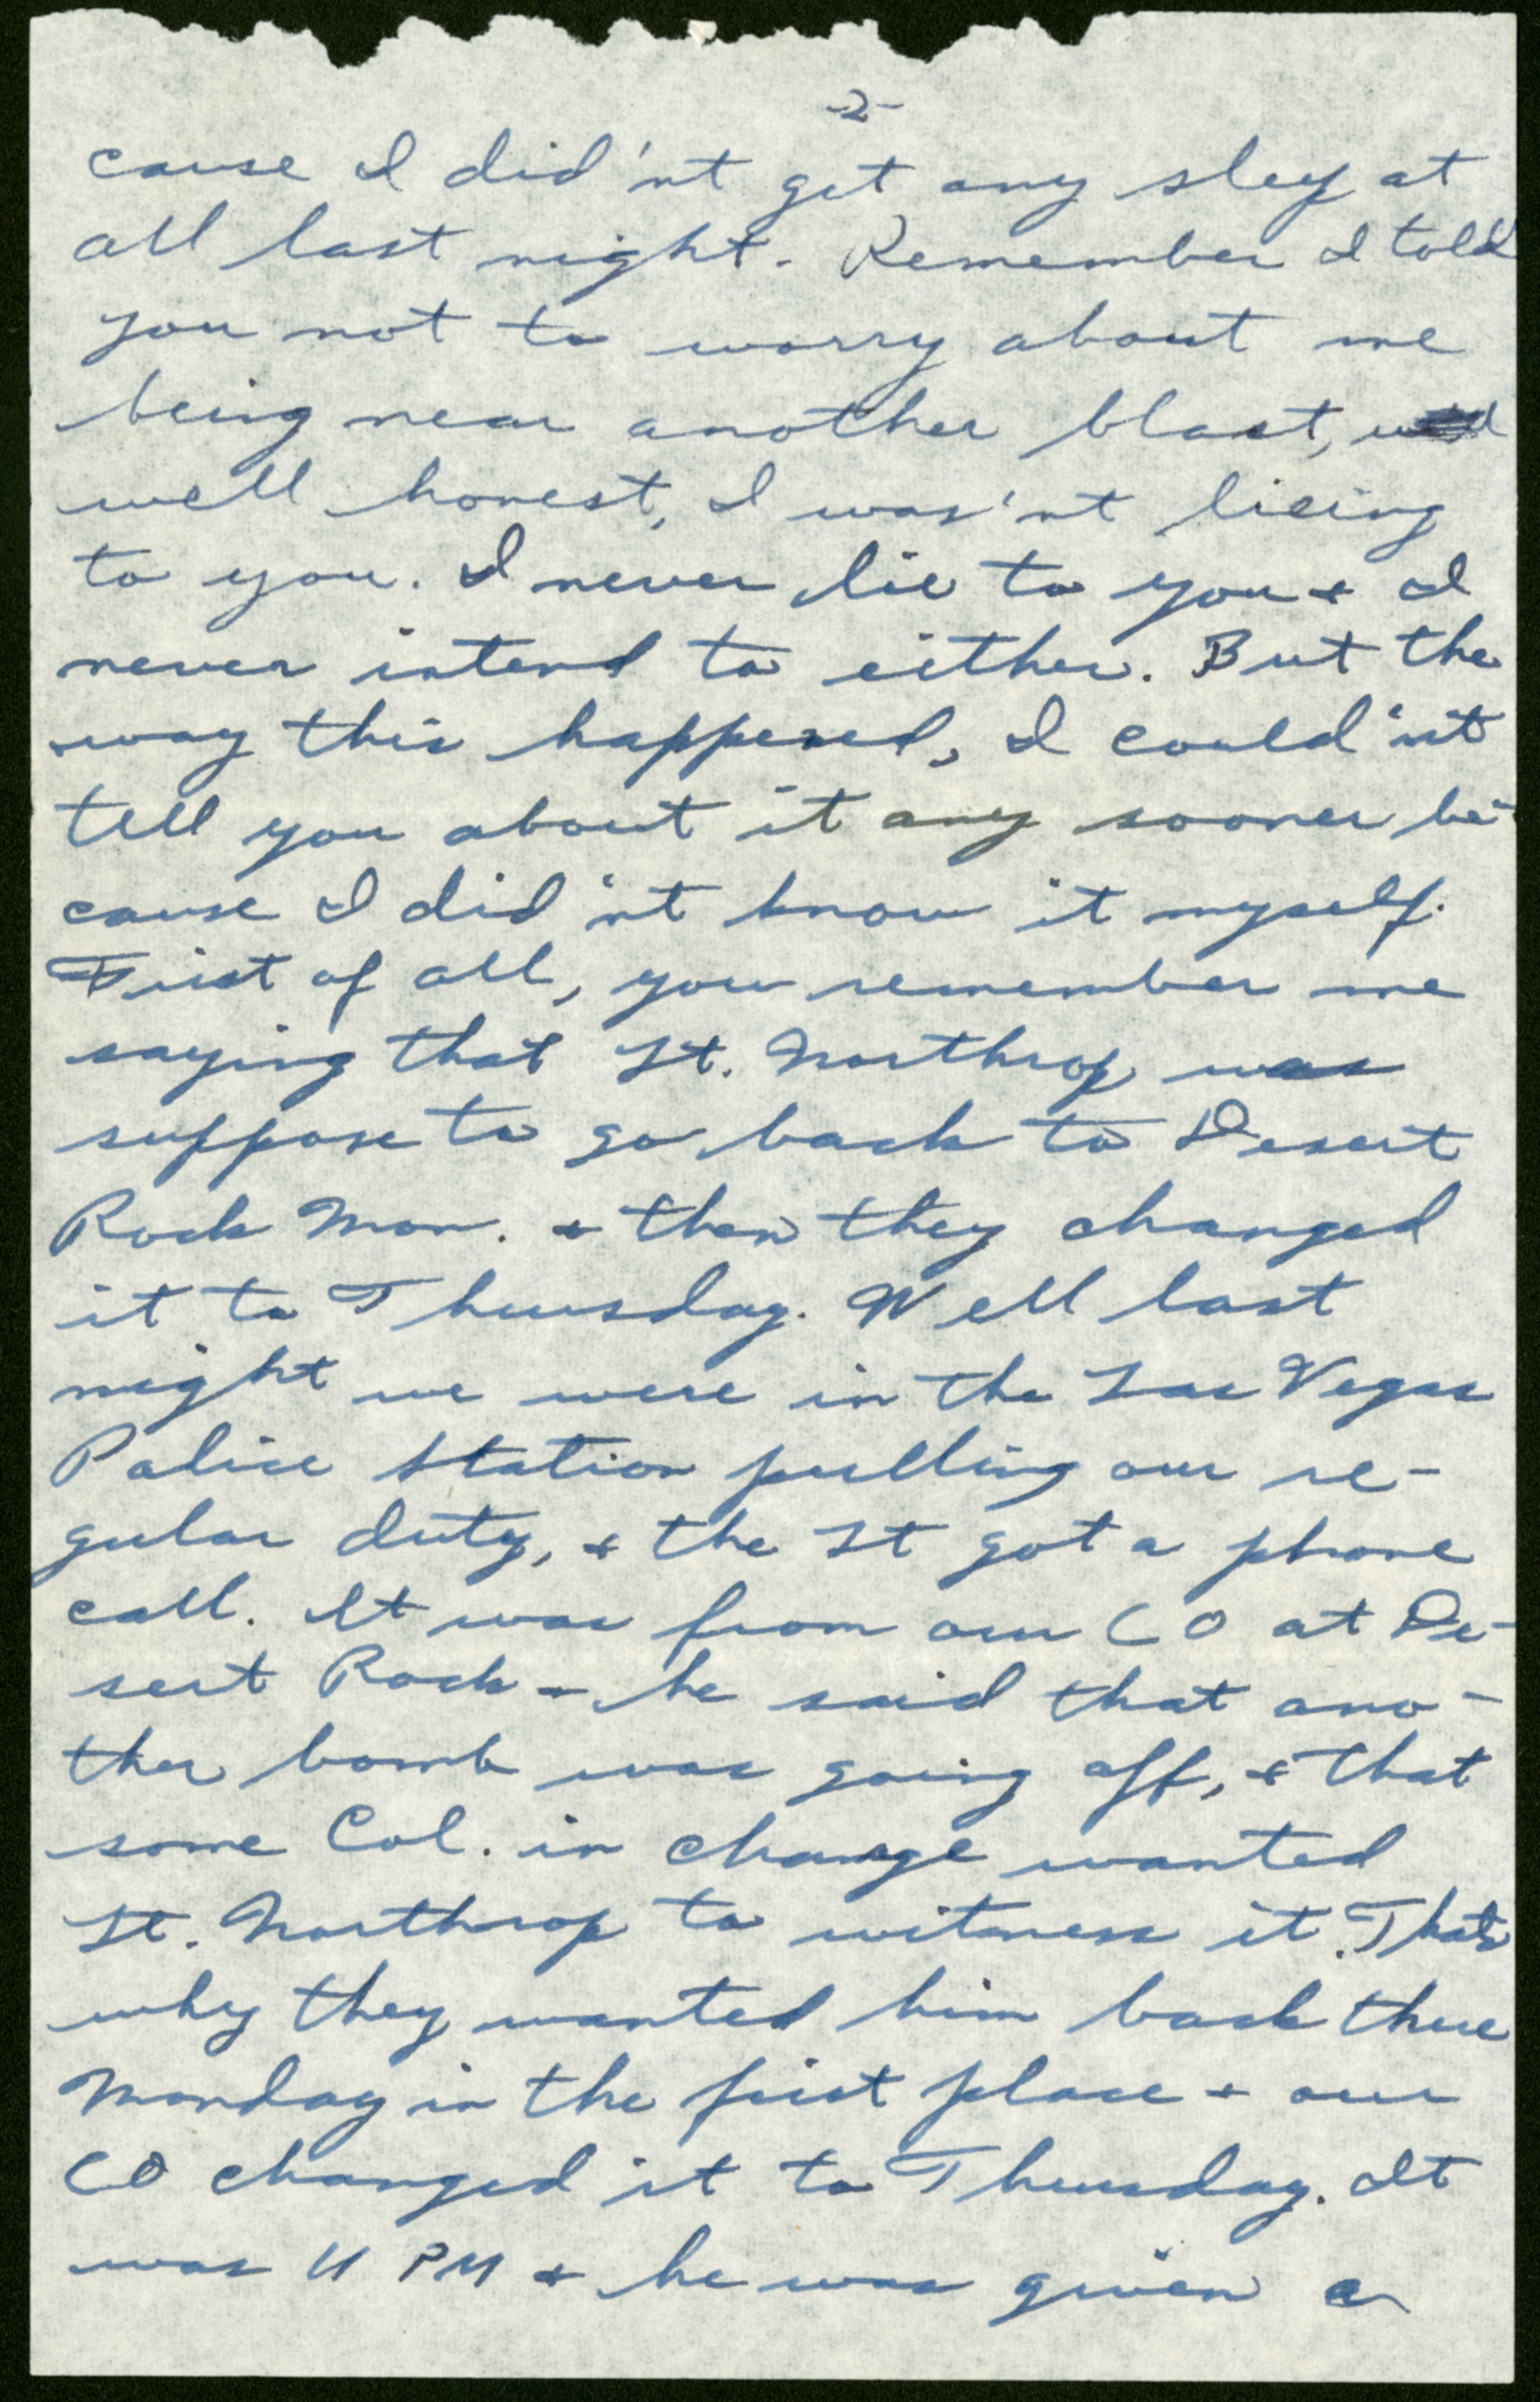 -2-
cause I did'nt get any sleep at
all last night. Remember I told
you not to worry about me
being near another blast,
well honest, I was'nt lieing
to you. I never lie to you & I
never intend to either. But the
way this happened, I could'nt
tell you about it any sooner be-
cause I did'nt know it myself.
First of all, you remember me
saying that Lt. Northrop was
suppose to go back to Desert
Rock Mon. & then they changed
it to Thursday. Well last
night we were in the Las Vegas
Police Station pulling our re-
gular duty, & the Lt got a phone
call. It was from our CO at De-
sert Rock & he said that ano-
ther bomb was going off, & that
some Col. in charge wanted
Lt. Northrop to witness it. Thats
why they wanted him back there
Monday in the first place & our
CO changed it to Thursday. It
was 11 PM & he was given a